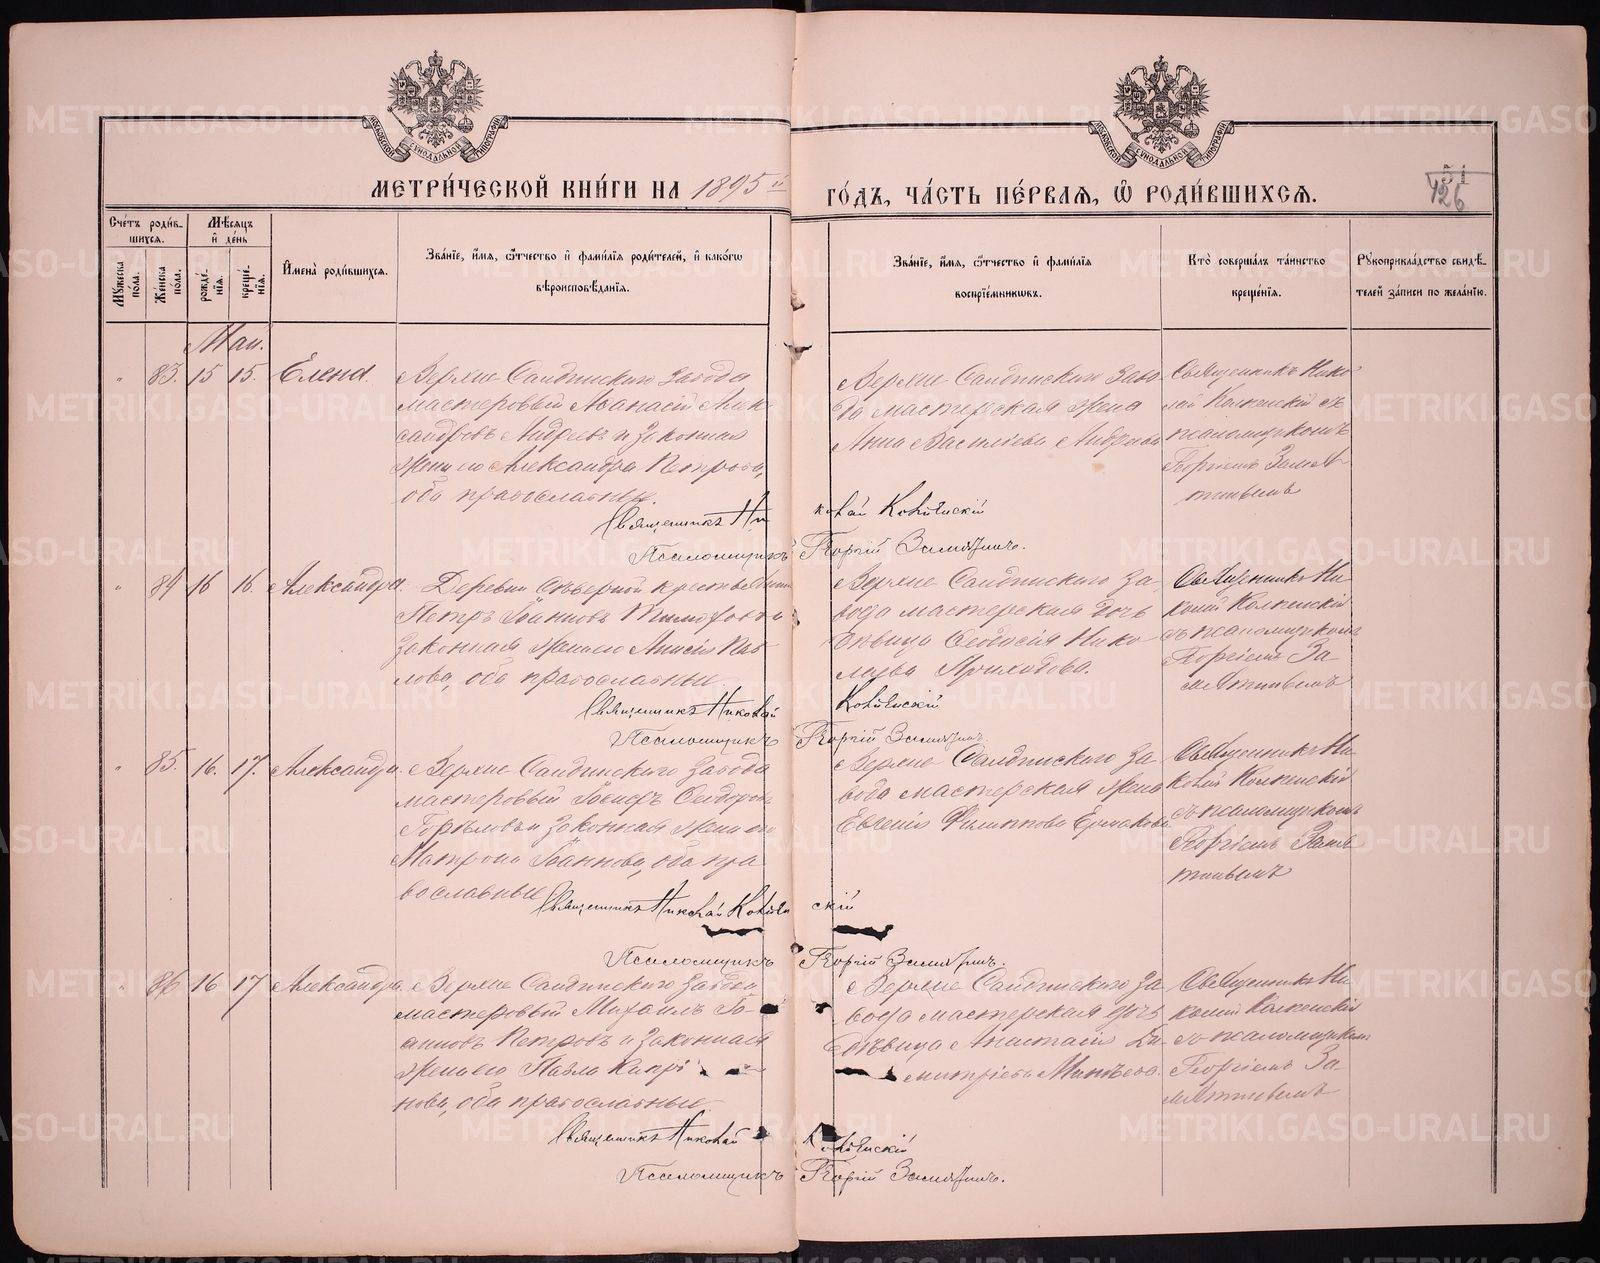 МОСКОВСКОЙ СѴНОДАЛЬНОЙ ТИПОГРАФІИ
МОСКОВСКОЙ СѴНОДАЛЬНОЙ ТИПОГРАФІИ
МЕТРИ́ЧЕСКОЙ КНИ́ГИ НА 1895 й ГО́ДЪ, ЧА́СТЬ ПЕ́РВАЯ, Ѡ РОДИ́ВШИХСЯ.
51
426
Сче́тъ роди́в-
шихся.
Мꙋжеска по́ла.
Же́нска по́ла.
Мѣ́сяцъ
и҆ де́нь
рожде́-
нїя.
креще́-
нїя.
И҆мена̀ роди́вшихся.
Зва́нїе, и҆́мя, ѻ҆́тчество и҆ фами́лїя роди́телей, и҆ како́гѡ
вѣроисповѣ́данїя.
Зва́нїе, и҆́мя, ѻ҆́тчество и҆ фами́лїя
воспрїе́мникѡвъ.
Кто̀ соверша́лъ та́инство
креще́нїя.
Рꙋкоприкла́дство свидѣ́-
телей за́писи по жела́нїю.
Май.
" 83. 15 15. Елена.
Верхне Салдинскаго завода
мастеровый Аѳанасій Алек-
сандровъ Андреевъ и законная
жена его Александра Петрова,
оба православные.
Верхне Салдинскаго заво-
да мастерская жена
Анна Васильева
Священникъ Нико-
лай
съ
псаломщикомъ
Георгіемъ Замя-
тинымъ
Священникъ Николай
Псаломщикъ Георгій Замятинъ.
" 84 16 16. Александра.
Деревни Северной
Петръ Іоанновъ и
законная жена его Анисія Пав-
лова, оба православные.
Верхне Салдинскаго за-
вода мастерская дочь
дѣвица Ѳеодосія Нико-
лаева Приходова.
Священникъ Ни-
колай
съ псаломщикомъ
Георгіемъ За-
мятинымъ
Священникъ Николай
Псаломщикъ Георгій Замятинъ.
" 85. 16. 17. Александра.
Верхне Салдинскаго завода
мастеровый Ѳеодоровъ
и законная жена его
Матрона Іоаннова, оба пра-
вославные
Верхне Салдинскаго за-
вода мастерская жена
Евгенія Филиппова Ермакова
Священникъ Ни-
колай
съ псаломщикомъ
Георгіемъ Замя-
тинымъ
Священникъ Николай
Псаломщикъ Георгій Замятинъ.
" 86 16 17 Александра.
Верхне Салдинскаго завода
мастеровый Михаилъ Іо-
анновъ Петровъ и законная
жена его Павла Капри-
нова, оба православные
Верхне Салдинскаго за-
вода мастерская дочь
дѣвица Анастасія Ди-
митріева
Священникъ Ни-
колай
съ псаломщикомъ
Георгіемъ За-
мятинымъ
Священникъ Николай
Псаломщикъ Георгій Замятинъ.
METRIKI.GASO-URAL.RU